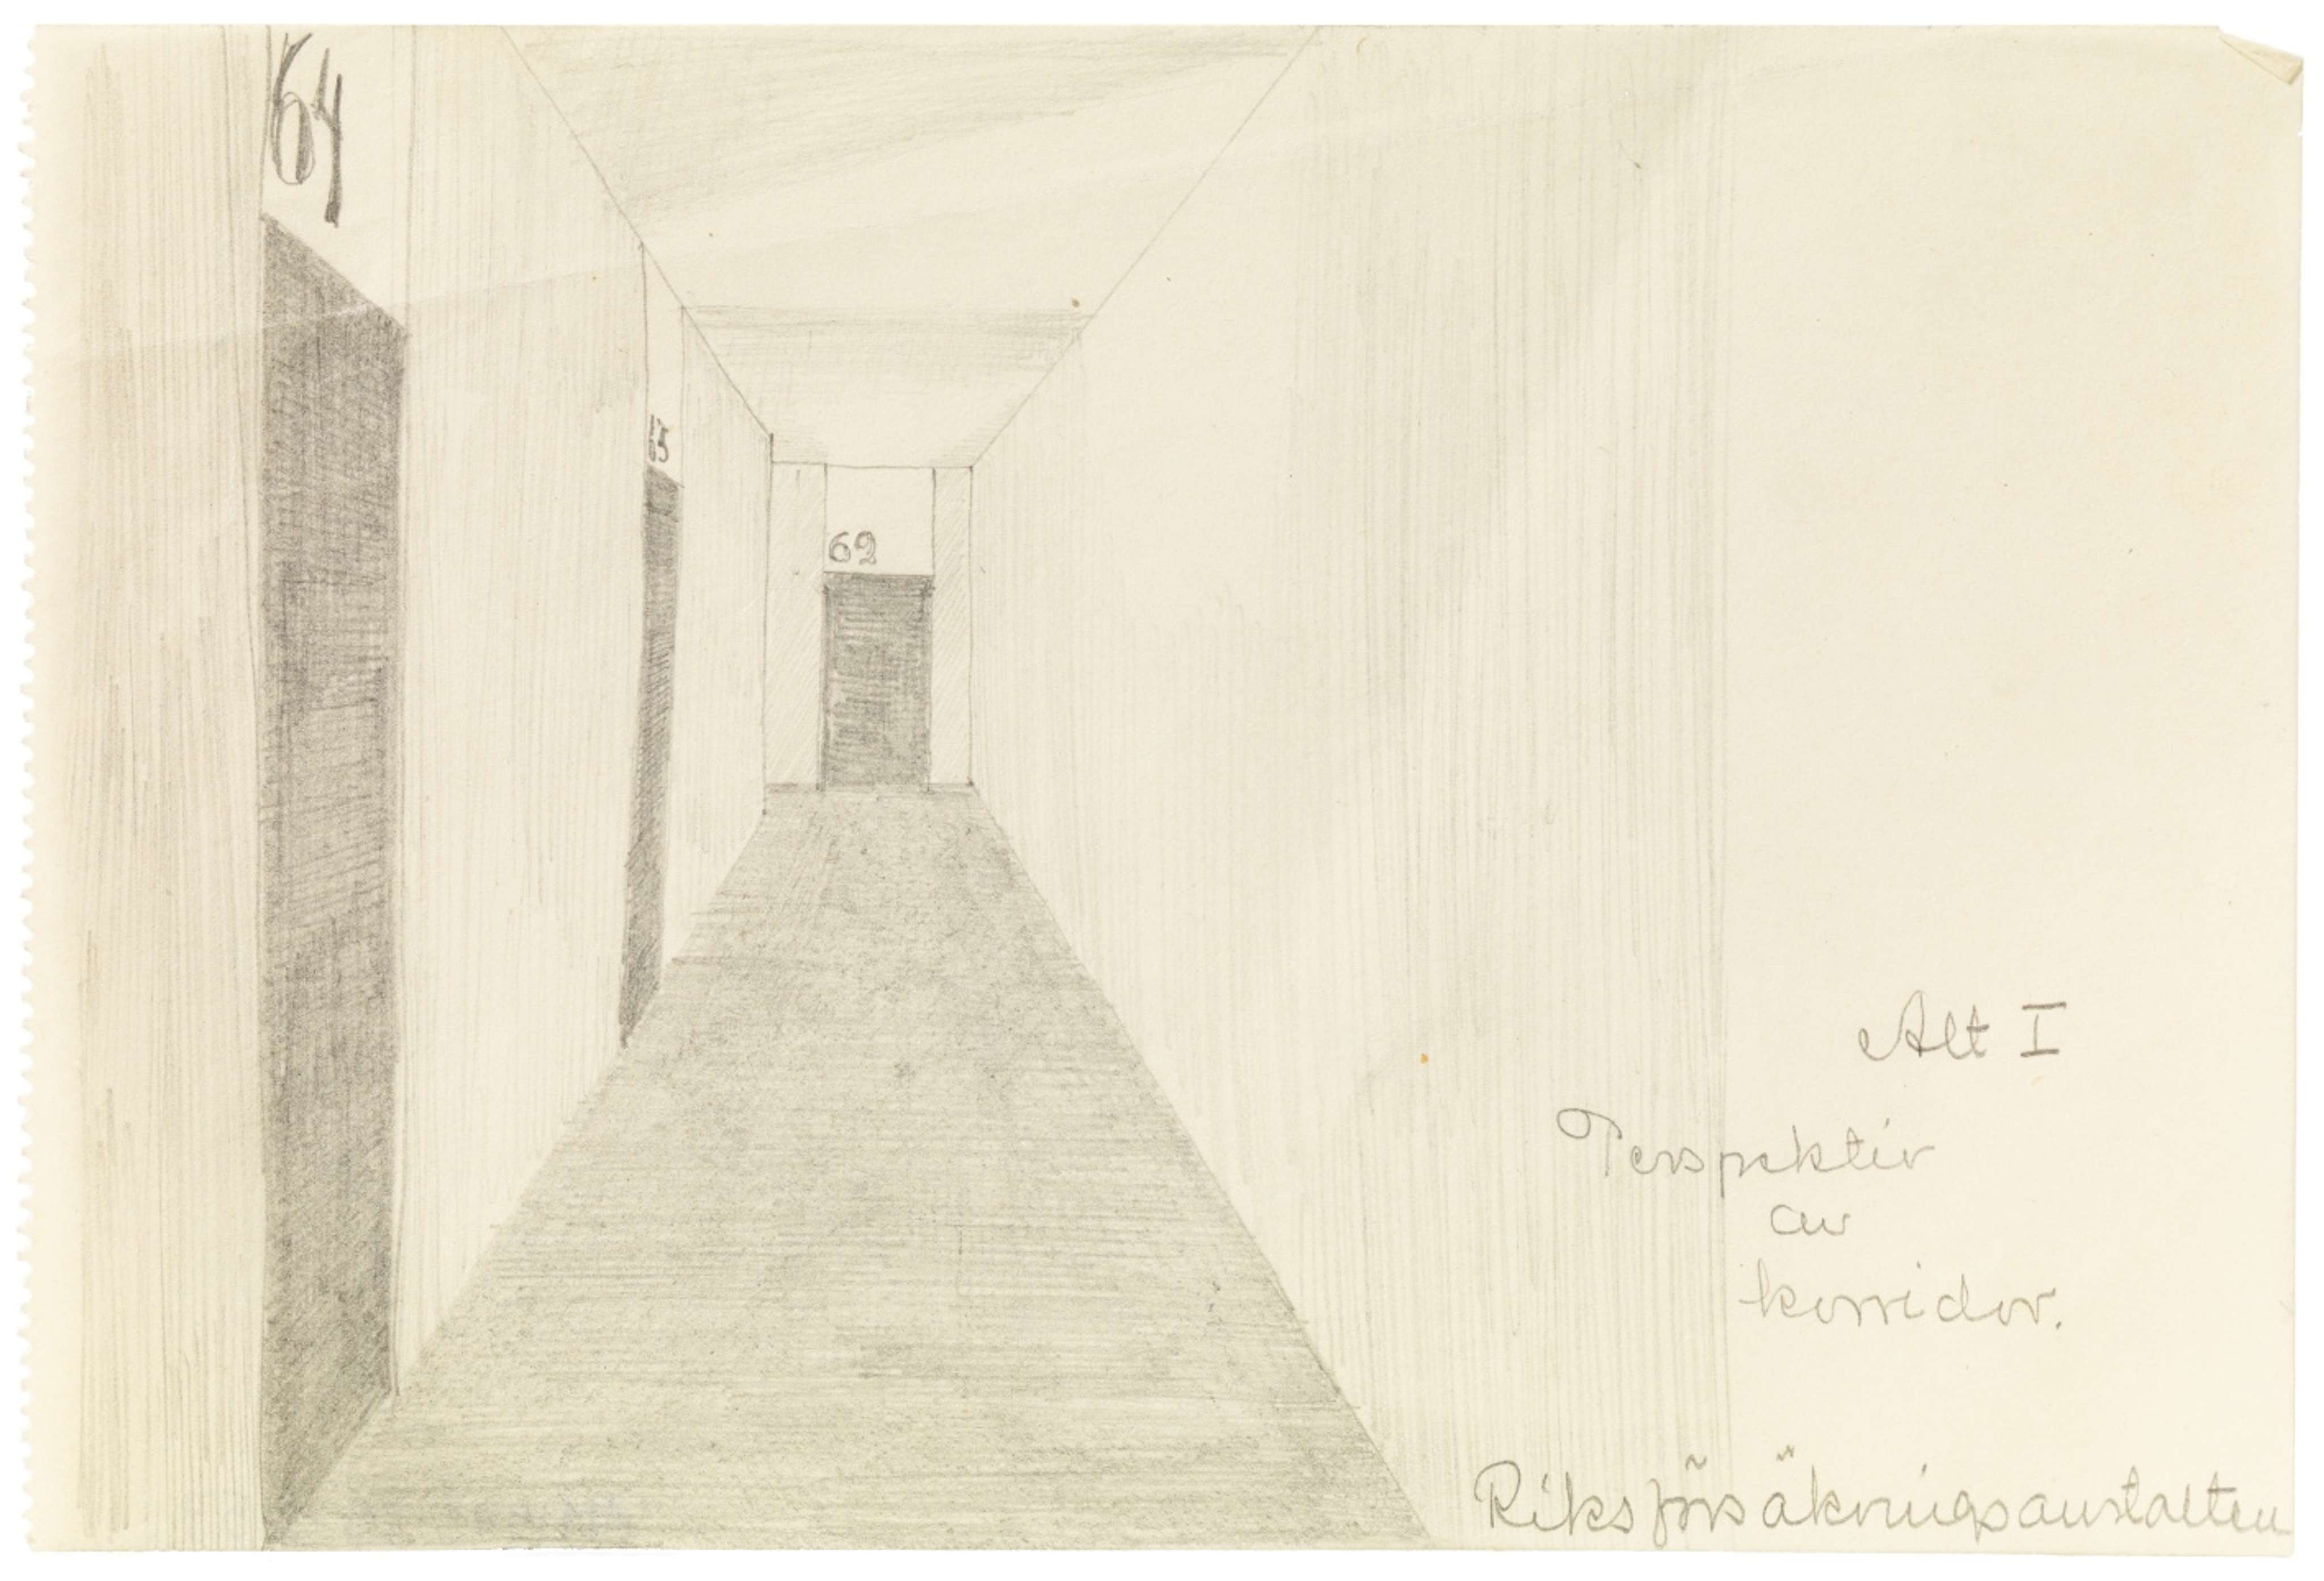 64
63
62
Alt I
Perspektiv
av
korridor.
Riksförsäkringsanstalten